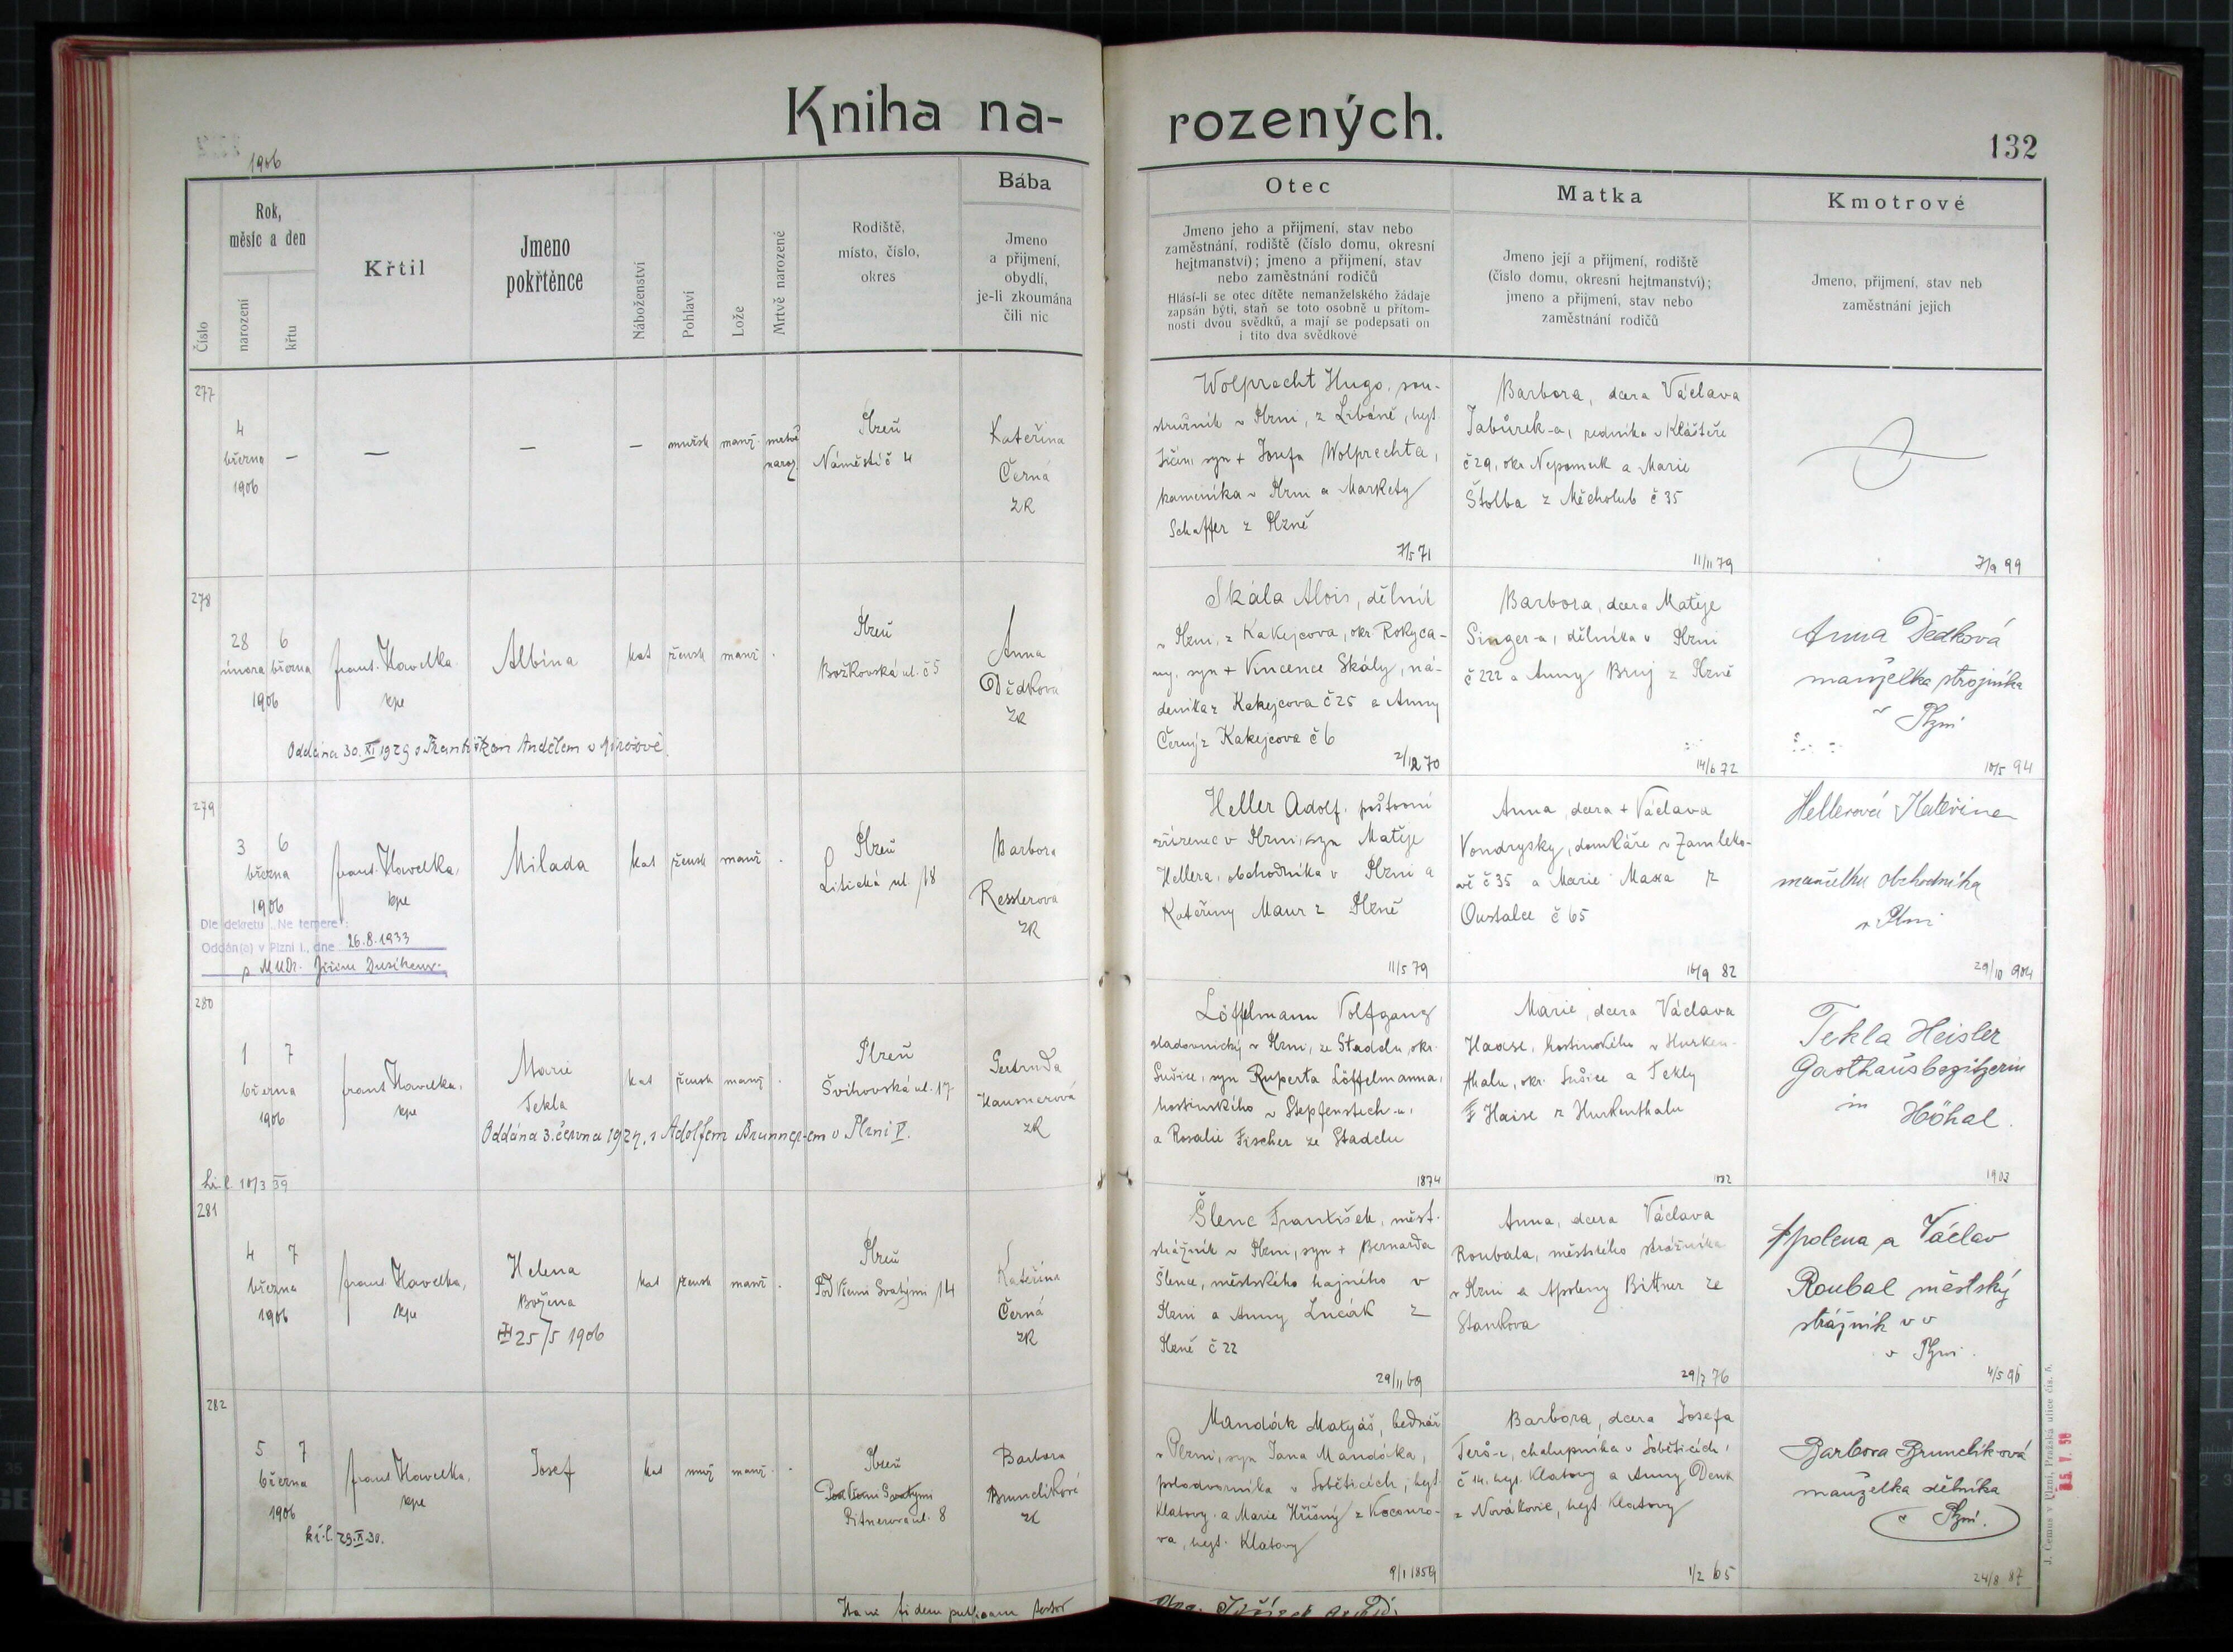 Kniha na-
rozených.
132
1906
Číslo
Rok,
měsíc a den
narození
křtu
Křtil
Jmeno
pokřtěnce
Náboženství
Pohlaví
Lože
Mrtvě narozené
Rodiště,
místo, číslo,
okres
Bába
Jmeno
a přijmení,
obydlí,
je-li zkoumána
čili nic
Otec
Jmeno jeho a přijmení, stav nebo
zaměstnání, rodiště (číslo domu, okresní
hejtmanství); jmeno a přijmení, stav
nebo zaměstnání rodičů
Hlásí-li se otec dítěte nemanželského žádaje
zapsán býti, staň se toto osobně u přítom-
nosti dvou svědků, a mají se podepsati on
i tito dva svědkové
Matka
Jmeno její a přijmení, rodiště
(číslo domu, okresní hejtmanství);
jmeno a přijmení, stav nebo
zaměstnání rodičů
Kmotrové
Jmeno, přijmení, stav neb
zaměstnání jejich
277
4
března
1906
—
—
—
—
mužsk
manž.
mrtvě
naroz.
Plzeň
Náměstí č 4
Kateřina
Černá
ZR
Wolprecht Hugo, sou-
stružník v Plzni, z Libáně, hejt.
Jičín, syn + Josefa Wolprechta,
kameníka v Plzni a Markety
Schaffer z Plzně
7/5 71
Barbora, dcera Václava
Jabůrek-a, řezníka v Klášteře
č 29, okr. Nepomuk a Marie
Štolba z Měcholub č 35
11/11 79
7/9 99
278
28 6
února března
1906
frant. Havelka
kpe
Albína
kat
žensk
manž
Plzeň
Božkovská ul. č 5
Anna
Dědková
ZR
Oddána 30. XI 1929 s Františkem Andělem v
Skála Alois, dělník
v Plzni, z Kakejcova, okr. Rokyca-
ny, syn + Vincence Skály, ná-
deníka z Kakejcova č 25 a Anny
Černý z Kakejcova č 6
2/12 70
Barbora, dcera Matěje
Singer-a, dělníka v Plzni
č 222 a Anny Bruj z Plzně
14/6 72
Anna Dedková
manželka strojníka
v Plzni
10/5 94
279
3 6
března
1906
frant. Havelka,
kpe
Milada
kat
žensk
manž
Plzeň
Litická ul. 18
Barbora
Resslerova
ZR
Dle dekretu „Ne temere":
Oddán(a) v Plzni I., dne 26.8.1933
s MUDr. Jiřím
Heller Adolf, poštovní
zřízenec v Plzni, syn Matěje
Hellera, obchodníka v Plzni a
Kateřiny Maur z Plzně
11/5 79
Anna, dcera + Václava
Vondrysky, domkáře v Zamleko-
vě č 35 a Marie Maxa z
Oustalce č 65
16/9 82
Hellerová Kateřina
manželka obchodníka
v Plzni
29/10 904
280
1 7
března
1906
frant. Havelka,
kpe
Marie
Tekla
kat
žensk
manž
Plzeň
Švihovská ul. 17
Gertruda
Hausnerová
ZR
Oddána 3. června 1927, s Adolfem Brunner-em v Plzni V.
10/3 39
Löffelmann Volfgang
sladovnický v Plzni, ze Stadeln, okr.
Sušice, syn Ruperta Löffelmanna,
hostinského v Stepfenstech-u,
a Rosalie Fischer ze Stadeln
1874
Marie, dcera Václava
Haase, hostinského v Hurken-
thalu, okr. Sušice a Tekly
Haise z Hurkenthalu
1882
Tekla Heisler
Gasthausbezitzerin
in Höhal.
1903
281
4 7
března
1906
frant. Havelka,
kpe
Helena
Božena
25/5 1906
kat
žensk
manž
Plzeň
Pod Všemi Svatými 14
Kateřina
Černá
ZR
Šlenc František, měst.
strážník v Plzni, syn + Bernarda
Šlence, městského hajného v
Plzni a Anny Lucák z
Plzně č 22
29/11 69
Anna, dcera Václava
Roubala, městského strážníka
v Plzni a Apoleny Bittner ze
Stankova
29/7 76
Apolena a Václav
Roubal městský
strážník v v
v Plzni.
4/5 96
282
5 7
března
1906
frant. Havelka,
kpe
Josef
kat
muž
manž.
Plzeň
Pod Všemi Svatými
Pitnerova ul. 8
Barbora
Brunclíková
ZR
kř. l. 29. X. 30.
Mandák Matyáš, bednář
v Plzni, syn Jana Mandáka,
polodvorníka v Soběticích, hejt.
Klatovy, a Marie Hříšný z Kocouro-
va, hejt. Klatovy
9/1 1859
Barbora, dcera Josefa
Terš-e, chalupníka v Soběticích,
č 14, hejt. Klatovy a Anny Denk
z Novákovic, hejt. Klatovy
1/2 65
Barbora Brunclíková
manželka dělníka
v Plzni.
24/8 87
J. Černus v Plzni, Pražská ulice čís. 8.